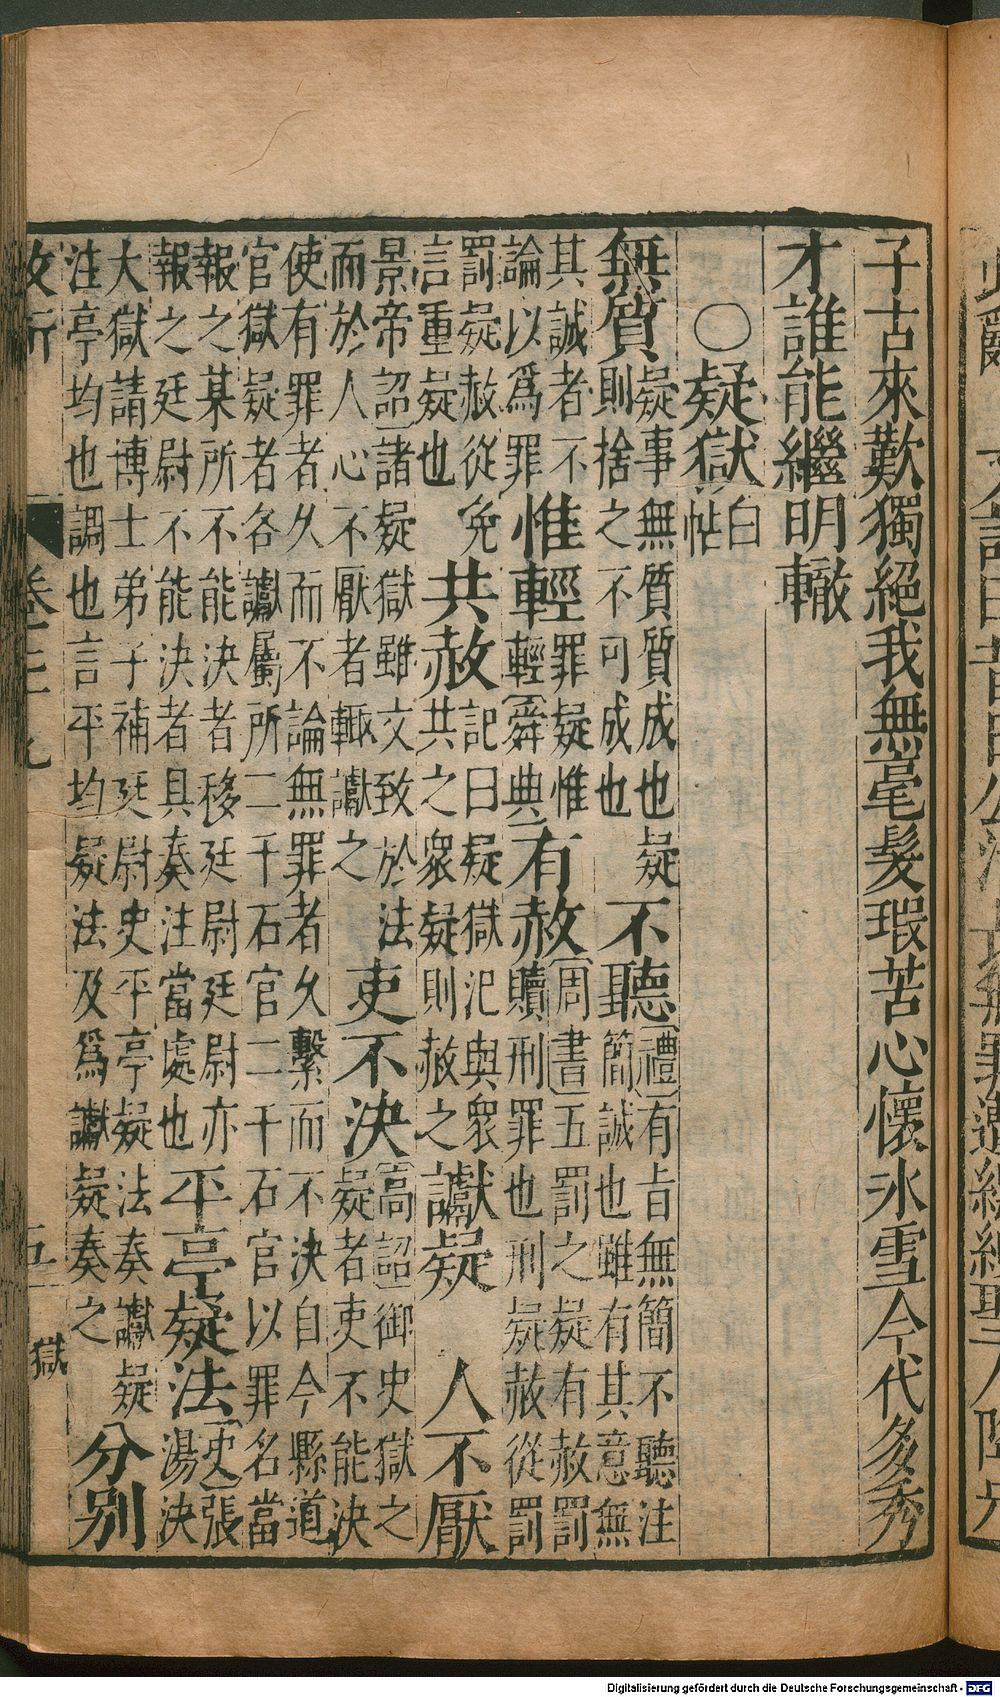 子古來歎獨絕我無毫髮瑕苦心懷冰雪今代多秀
才誰能繼明轍
○疑獄白帖
無質疑事無質質成也疑則捨之不可成也不聽禮有旨無簡不聽注簡誠也雖有其意無
其誠者不論以爲罪惟輕罪疑惟輕舜典有赦周書五罰之疑有赦罰贖刑罪也刑疑赦從罰
罰疑赦從免言重疑也共赦記曰疑獄汜與衆共之衆疑則赦之讞疑 人不厭
景帝詔諸疑獄雖文致於法而於人心不厭者輒讞之吏不決高詔御史獄之疑者吏不能決
使有罪者久而不論無罪者久繫而不決自今縣道官獄疑者各讞屬所二千石官二千石官以罪名當
報之某所不能決者移廷尉廷尉亦報之廷尉不能決者具奏注當處也平亭疑法史張湯決
大獄請博士弟子補廷尉史平亭疑法奏讞疑注亭均也調也言平均疑法及爲讞疑奏之分別
獄
Digitalisierung gefördert durch die Deutsche Forschungsgemeinschaft - DFG